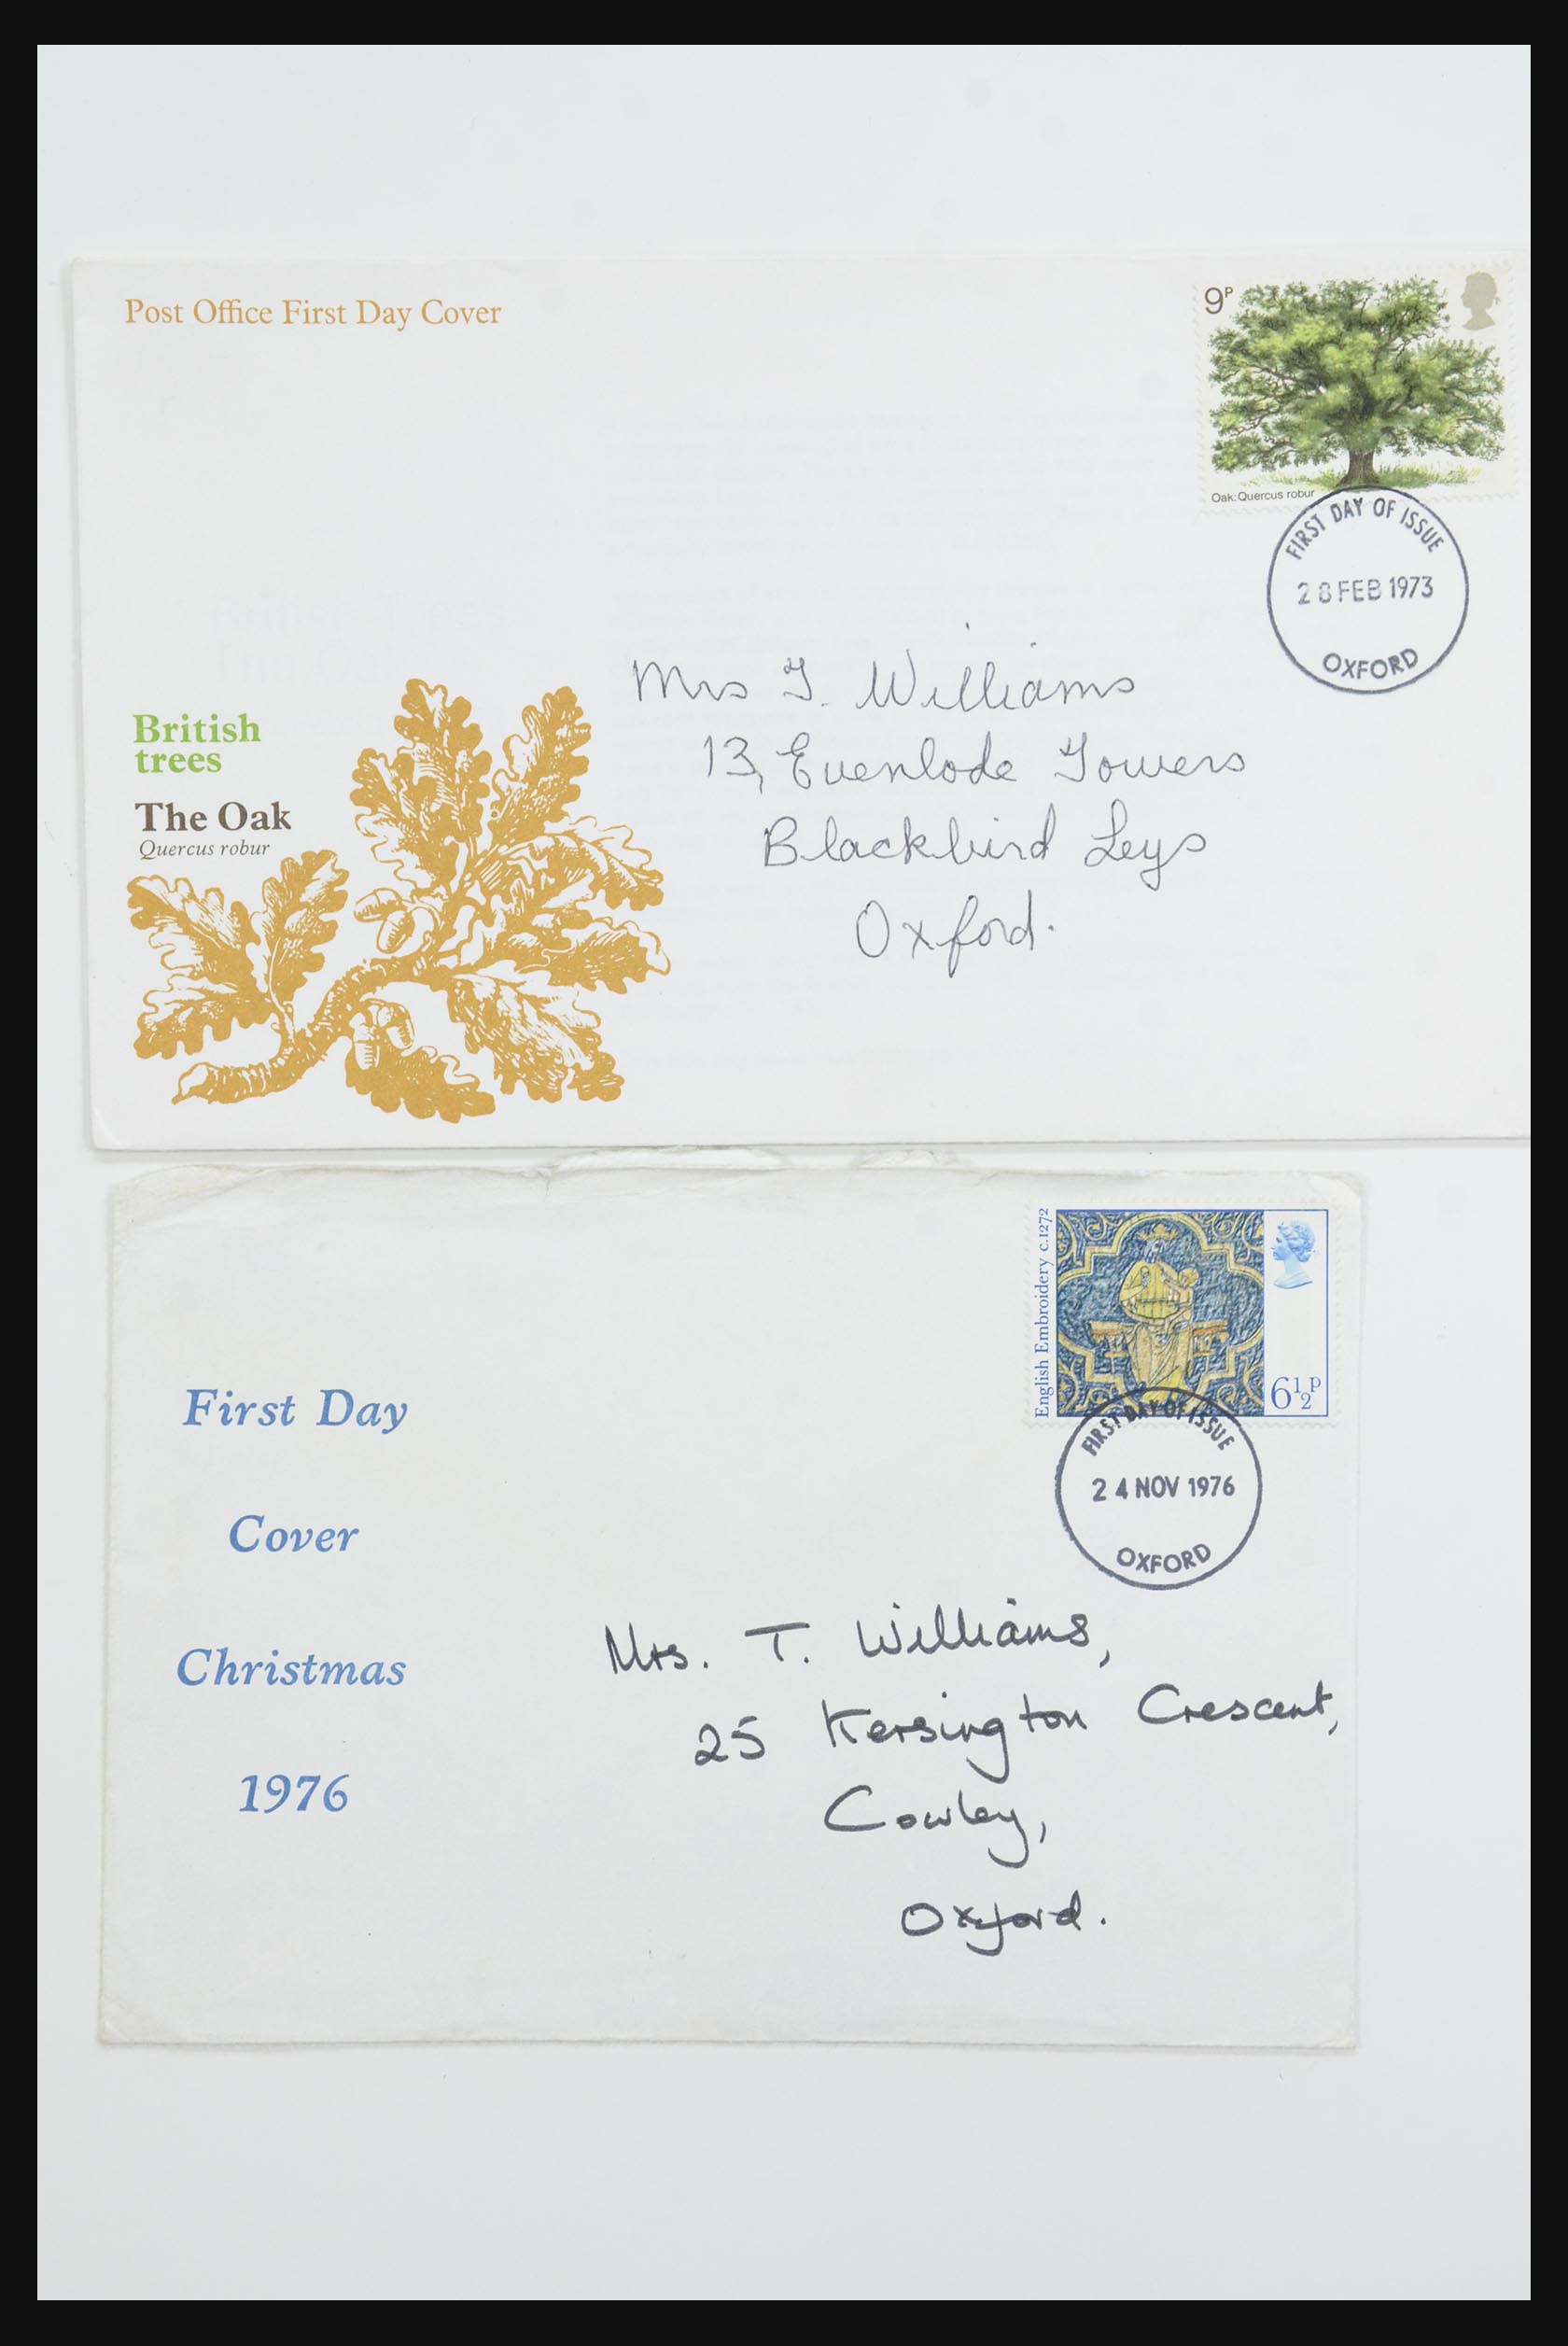 Post Office First Day Cover
9P
Oak: Quercus robur
FIRST DAY OF ISSUE
28 FEB 1973
OXFORD
Mrs T. Williams
13, Evenlode Towers
Blackbird Leys
Oxford.
British
trees
The Oak
Quercus robur
English Embroidery c.1272
6½P
FIRST DAY OF ISSUE
24 NOV 1976
OXFORD
First Day
Cover
Christmas
1976
Mrs. T. Williams,
25 Kersington Crescent,
Cowley,
Oxford.